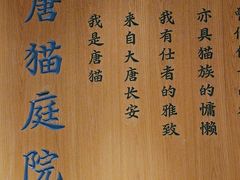 唐猫庭院
我是唐猫
来自大唐长安
我有仕者的雅致
亦具猫族的慵懒